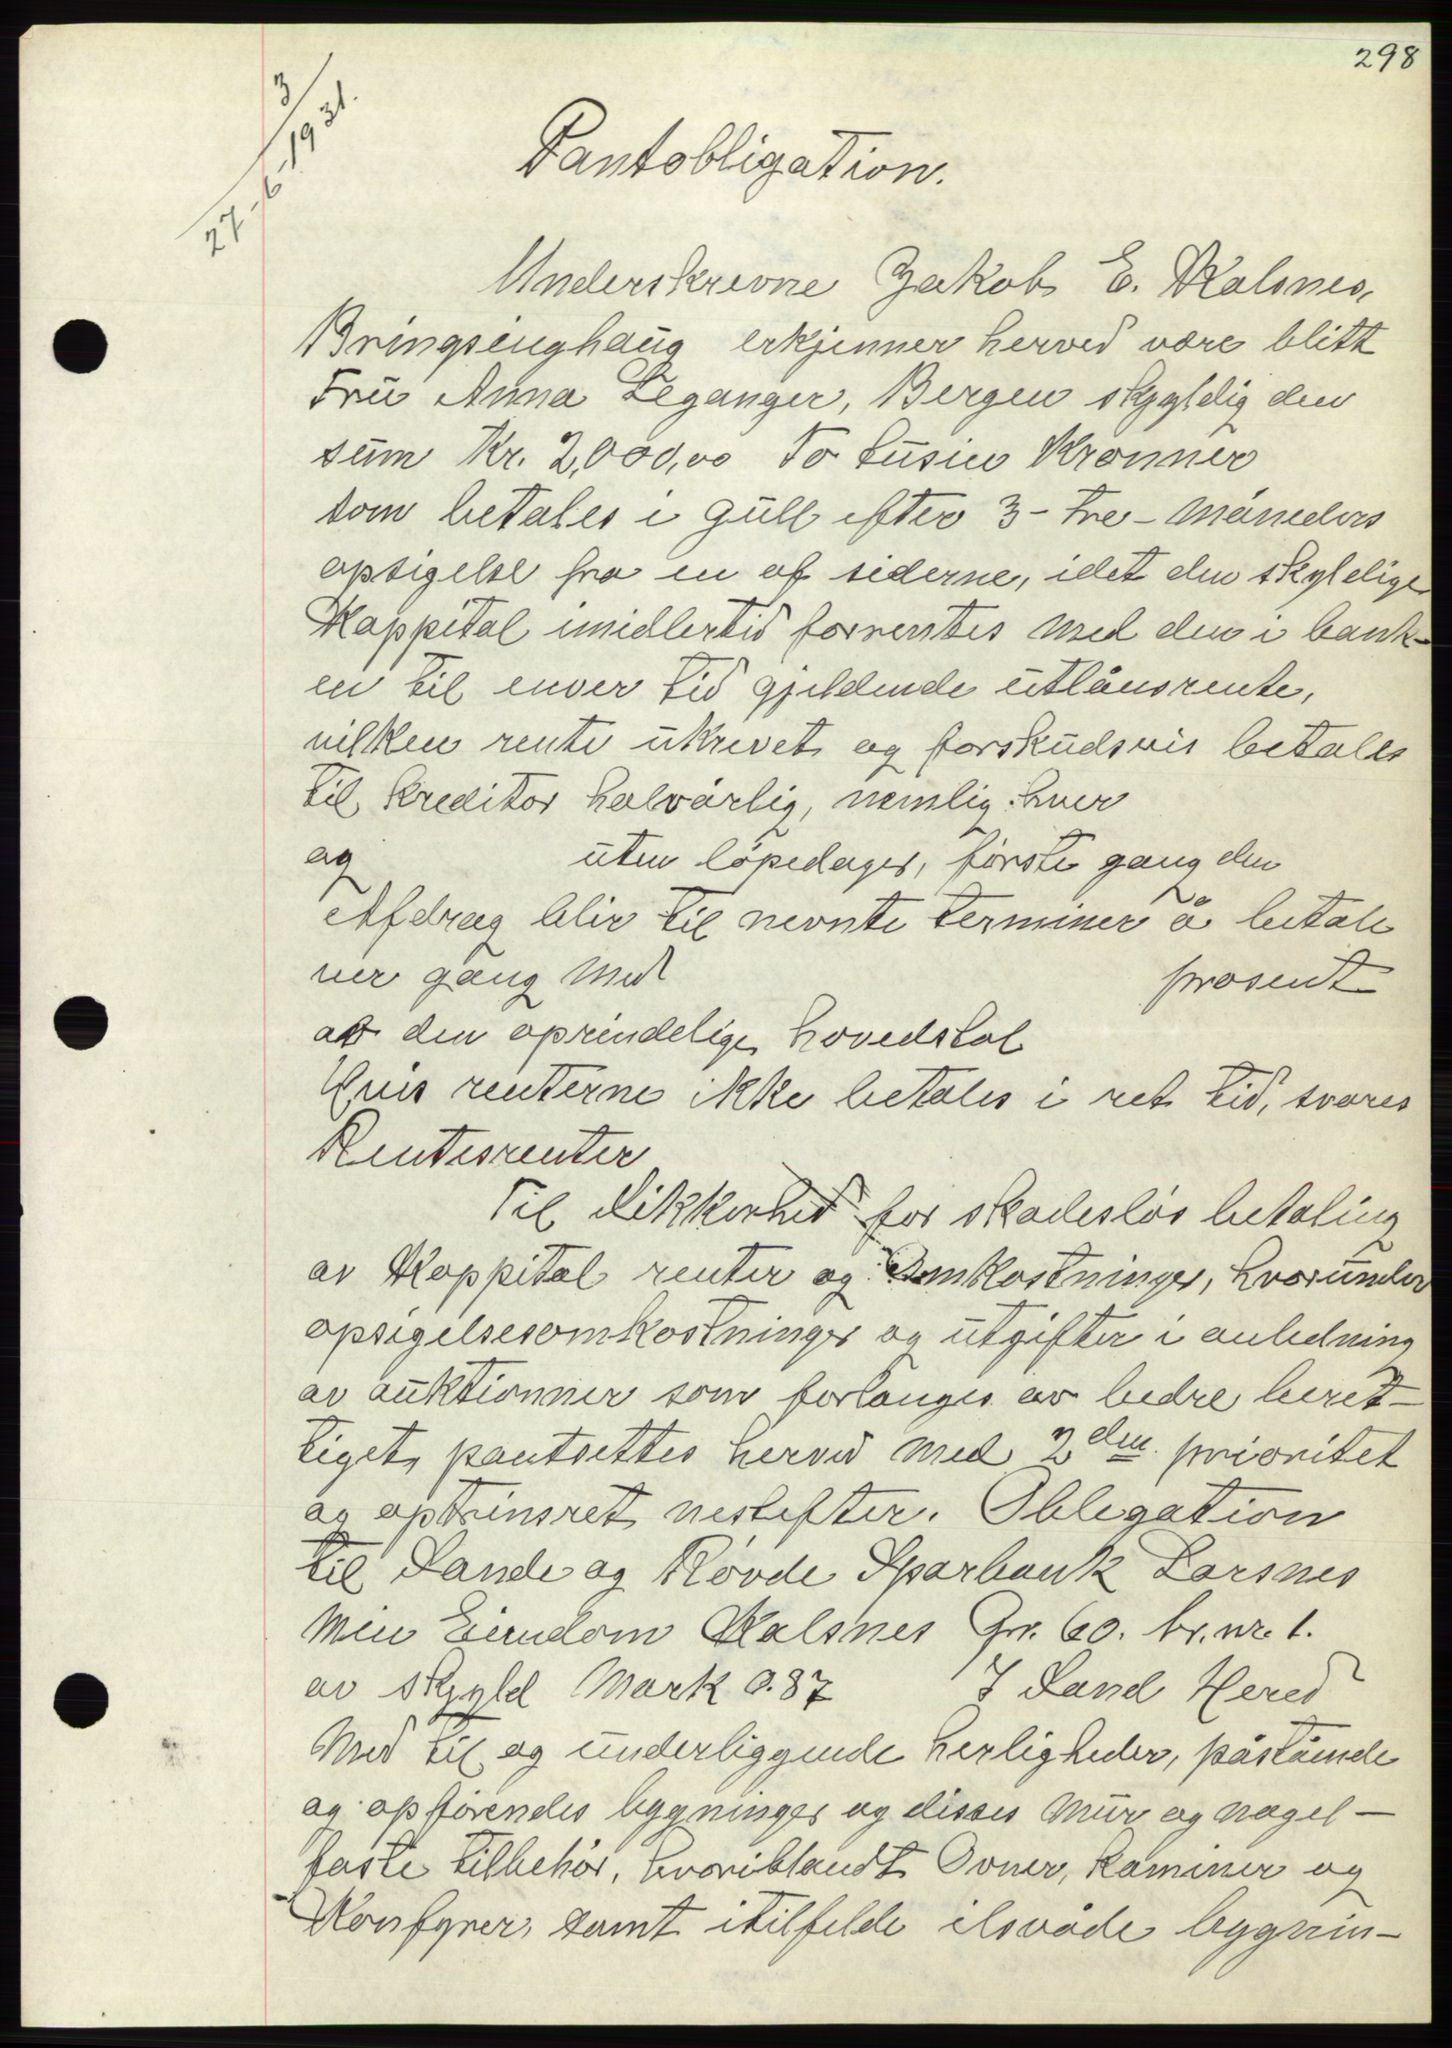 298
3
27-6-1931.
Pantobligation.
Underskrevne Jakob E. Kalsnes,
Bringsinghaug erkjenner herved være blitt
Fru Anna Leganger, Bergen skyldig den
sum Kr. 2,000,00 To tusin Kronner
som betales i gull efter 3- tre- måneders
opsigelse fra en af siderne, idet den skyldige
Kappital imidlertid forrentes med den i bank-
en til enver tid gjeldende utlånsrente,
vilken rente ukrevet og forskudsvis betales
til kreditor halvårlig, nemlig: hver
og uten löpedager, förste gang den
Afdrag blir til nevnte terminer å betale
ver gang med prosent
av den oprindelige hovedstol
Hvis renterne ikke betales i ret tid, svares
Rentesrenter
Til Sikkerhed for skadeslös betaling
av Kappital renter og Omkostninger, hvorunder
opsigelsesomkostninger og utgifter i anledning
av auktionner som forlanges av bedre beret-
tiget, pantsettes herved med 2den prioritet
og optrinsret nestefter. Oblegation
til Sande og Rövde Sparbank Larsnes
min Eiendom Kalsnes Gr. 60. br. nr. 1.
av skyld Mark 0.87 I Sand Hered
Med til og underliggende herligheder, påstående
og opförendes bygninger og disses mur og nagel-
faste tilbehör, hvoriblandt Ovner, kaminer og
Komfyrer, samt itilfelde ilsvåde bygnin-